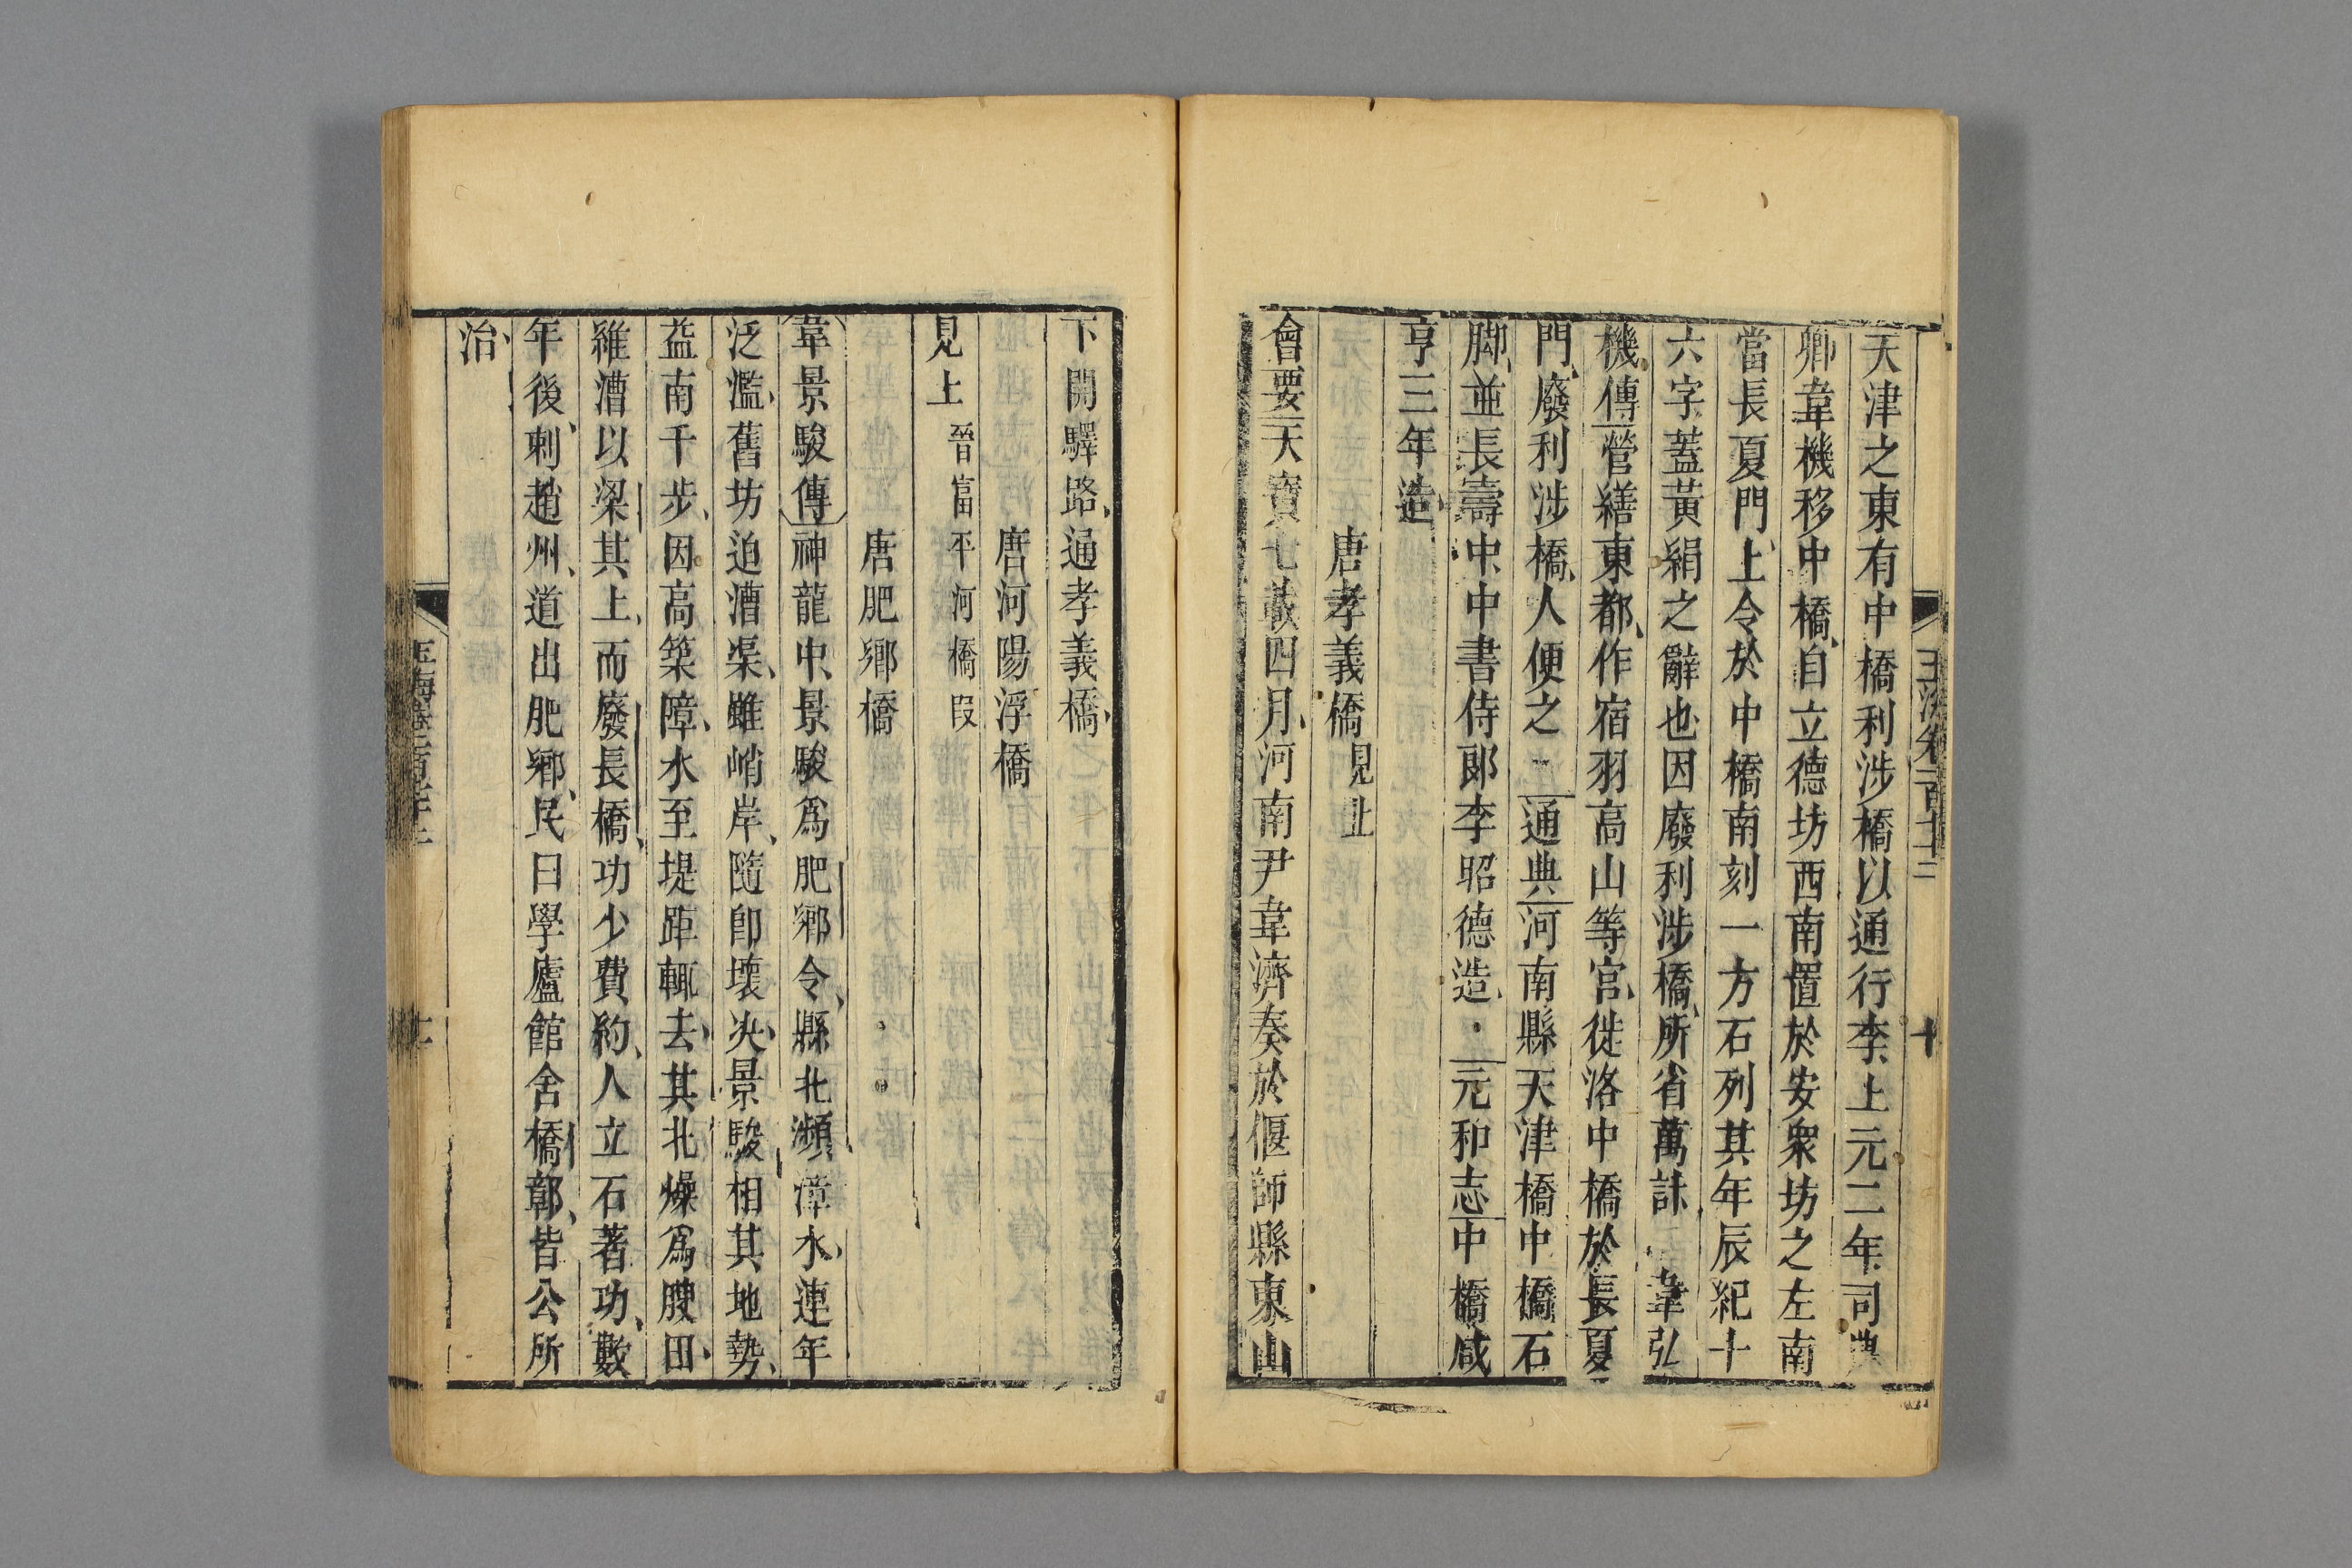 天津之東有中橋利涉橋以通行李上元二年司農
卿韋機移中橋自立德坊西南置於安衆坊之左南
當長夏門上令於中橋南刻一方石列其年辰紀十
六字葢黃絹之辭也因廢利涉橋所省萬計 韋弘
機傳營繕東都作宿羽高山等宮徙洛中橋於長夏
門廢利涉橋人便之 通典河南縣天津橋中橋石
脚並長壽中中書侍郎李昭德造 元和志中橋咸
亨三年造
唐孝義橋見上
會要天寶七載四月河南尹韋濟奏於偃師縣東山
下開驛路通孝義橋
唐河陽浮橋
見上晉富平河橋段
唐肥鄉橋
韋景駿傳神龍中景駿爲肥鄉令縣北瀕漳水連年
泛濫舊坊迫漕渠雖峭岸隨卽壞决景駿相其地勢
益南千步因高築障水至堤距輒去其北燥爲腴田
維漕以梁其上而廢長橋功少費約人立石著功數
年後刺趙州道出肥鄉民曰學廬館舍橋鄣皆公所
治